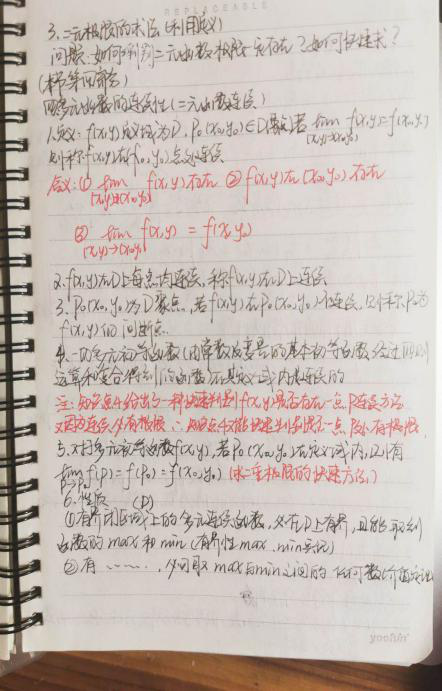 REPLACEABLE
3.二元极限的求法(利用定义)
问题:如何判别二元函数极限是否存在?如何快速求?
(本节第四部分)
四.多元函数的连续性(二元函数连续)
1.定义:f(x,y)定义域为D,P₀(x₀,y₀)∈D(聚点)若 lim f(x,y)=f(x₀,y₀)
(x,y)→(x₀,y₀)
则称f(x,y)在P₀(x₀,y₀)点连续
含义:① lim f(x,y)存在 ② f(x,y)在(x₀,y₀)存在
(x,y)→(x₀,y₀)
③ lim f(x,y) = f(x₀,y₀)
(x,y)→(x₀,y₀)
2.f(x,y)在D上每点均连续,称f(x,y)在D上连续
3.P₀(x₀,y₀)为D聚点,若f(x,y)在P₀(x₀,y₀)不连续,则称P₀为
f(x,y)的间断点.
4.一切多元初等函数(由常数及变量的基本初等函数经过四则
运算和复合得到的函数)在其定义域内是连续的
注:知识点4给出了一种快速判别f(x,y)是否在一点P连续方法
又因为连续必有极限∴知识点4又能快速判别在一点P是否有极限.
5.对多元初等函数f(x,y),若P₀(x₀,y₀)在定义域内,则有
lim f(P)=f(P₀)=f(x₀,y₀) (求二重极限的快速方法)
P→P₀
6.性质 (D)
①有界闭区域上的多元连续函数,必在D上有界,且能取到
函数的max和min(有界性max.min定理)
②有……,必可取max与min之间的任何数(介值定理)